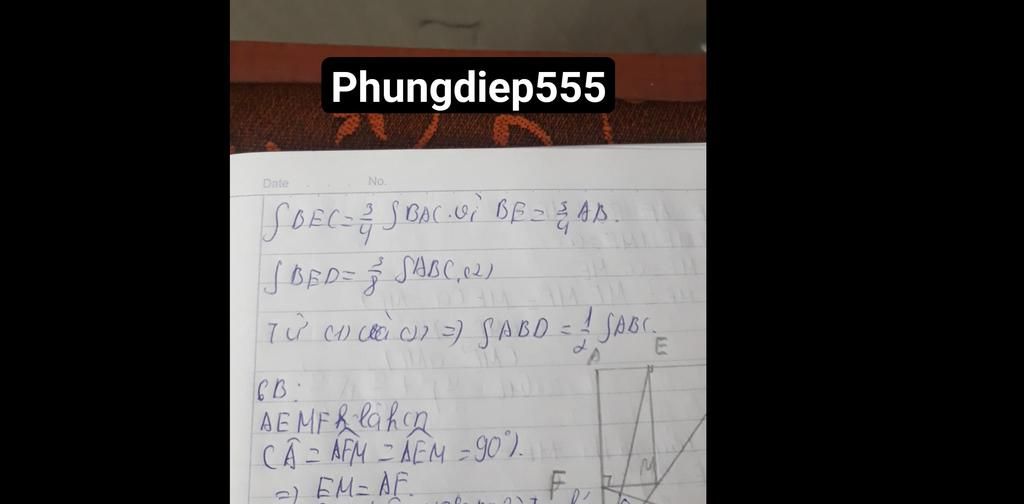 Phungdiep555
Date No.
∫BEC = 3/4 ∫BAC. vì BE = 3/4 AB.
∫BED = 3/8 ∫ABC (2)
Từ (1) và (2) => ∫ABD = 1/2 ∫ABC.
A E
6B:
AEMF là hcn
(Â = AFM = AEM = 90°).
M
=> EM = AF.
F